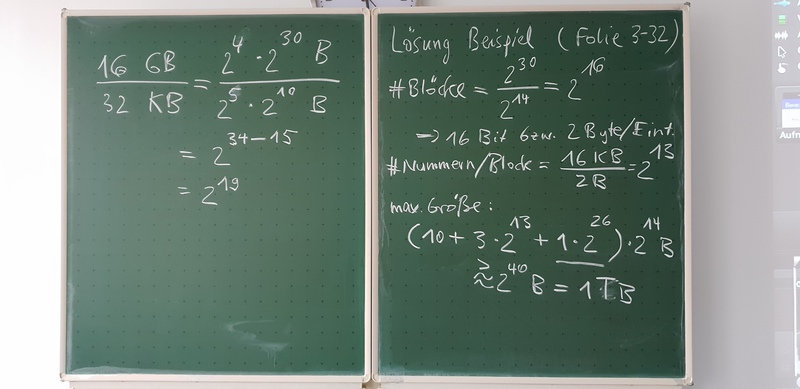 16 GB / 32 KB = 2^4 · 2^30 B / 2^5 · 2^10 B
= 2^34-15
= 2^19
Lösung Beispiel (Folie 3-32)
#Blöcke = 2^30 / 2^14 = 2^16
→ 16 Bit bzw. 2 Byte/Eint.
#Nummern/Block = 16 KB / 2B = 2^13
max. Größe:
(10 + 3 · 2^13 + 1 · 2^26) · 2^14 B
⪆ 2^40 B = 1TB